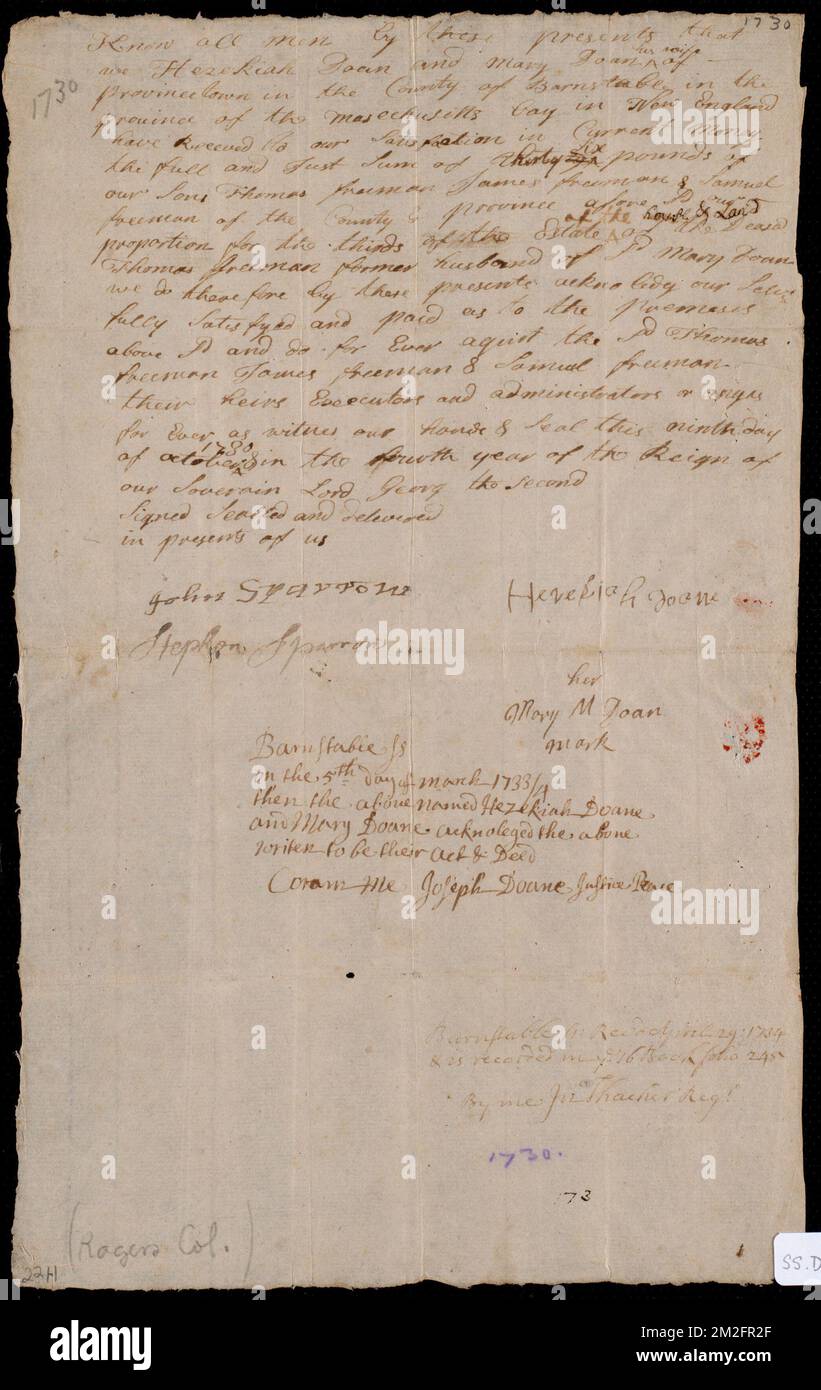 1730
Know all men by these presents that
his wife
we Hezekiah Doan and Mary Doan ^ of
1730
provincetown in the County of Barnstable in the
province of the Masechusitts bay in New England
have Receved to our Satisfaction in Current Money
the full and Just Sum of thirty six pounds of
our Sons Thomas freeman James freeman & Samuel
freeman of the County & province above Sd our
of the house & Land
proportion for the thirds of the Estate ^ of the Deasad
Thomas freeman former husband of Sd Mary Doan
we do therefore by these presents acknolidg our Selves
fully Satisfyed and paid as to the premises
above Sd and do for Ever aquitt the Sd Thomas
freeman James freeman & Samuel freeman
their heirs Executors and administrators or asigns
for Ever as witnes our hands & Seal this ninth day
1730
of october & in the fourth year of the Reign of
our Soverain Lord Georg the Second
Signed Sealed and delivered
in presents of us
John Sparrow
Hezekiah Doane
Stephen Sparrow
her
Mary M Doan
mark
Barnstable Ss
on the 5th day of march 1733/4
then the above named Hezekiah Doane
and Mary Doane acknoleged the above
writen to be their Act & Deed
Coram Me Joseph Doane Justice Peace
Barnstable Ss Recd 29: 1734
& is recorded in ye 16 Book folio 245
By me Jno Thacher Regr
1730.
173
(Rogers Col.)
22H
1
SS.D
alamy
Image ID: 2M2FR2F
www.alamy.com